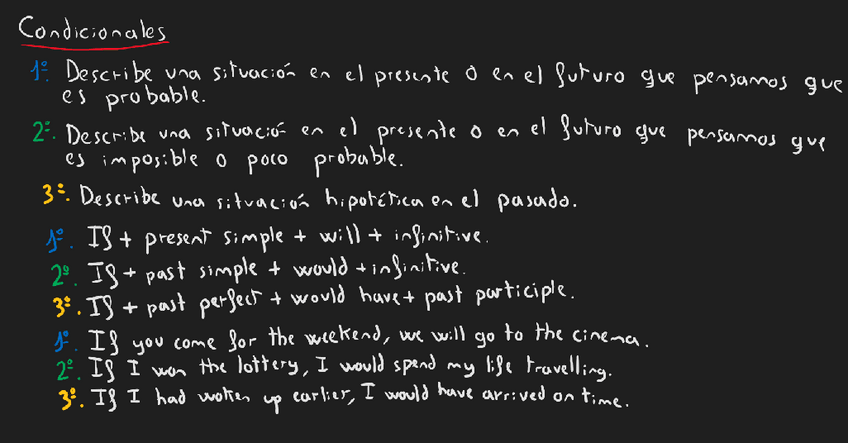 Condicionales
1º. Describe una situación en el presente o en el futuro que pensamos que
es probable.
2º. Describe una situació en el presente o en el futuro que pensamos que
es imposible o poco probable.
3º. Describe una situación hipotética en el pasado.
1º. If + present simple + will + infinitive.
2º. If + past simple + would + infinitive.
3º. If + past perfect + would have + past participle.
1º. If you come for the weekend, we will go to the cinema.
2º. If I won the lottery, I would spend my life travelling.
3º. If I had woken up earlier, I would have arrived on time.